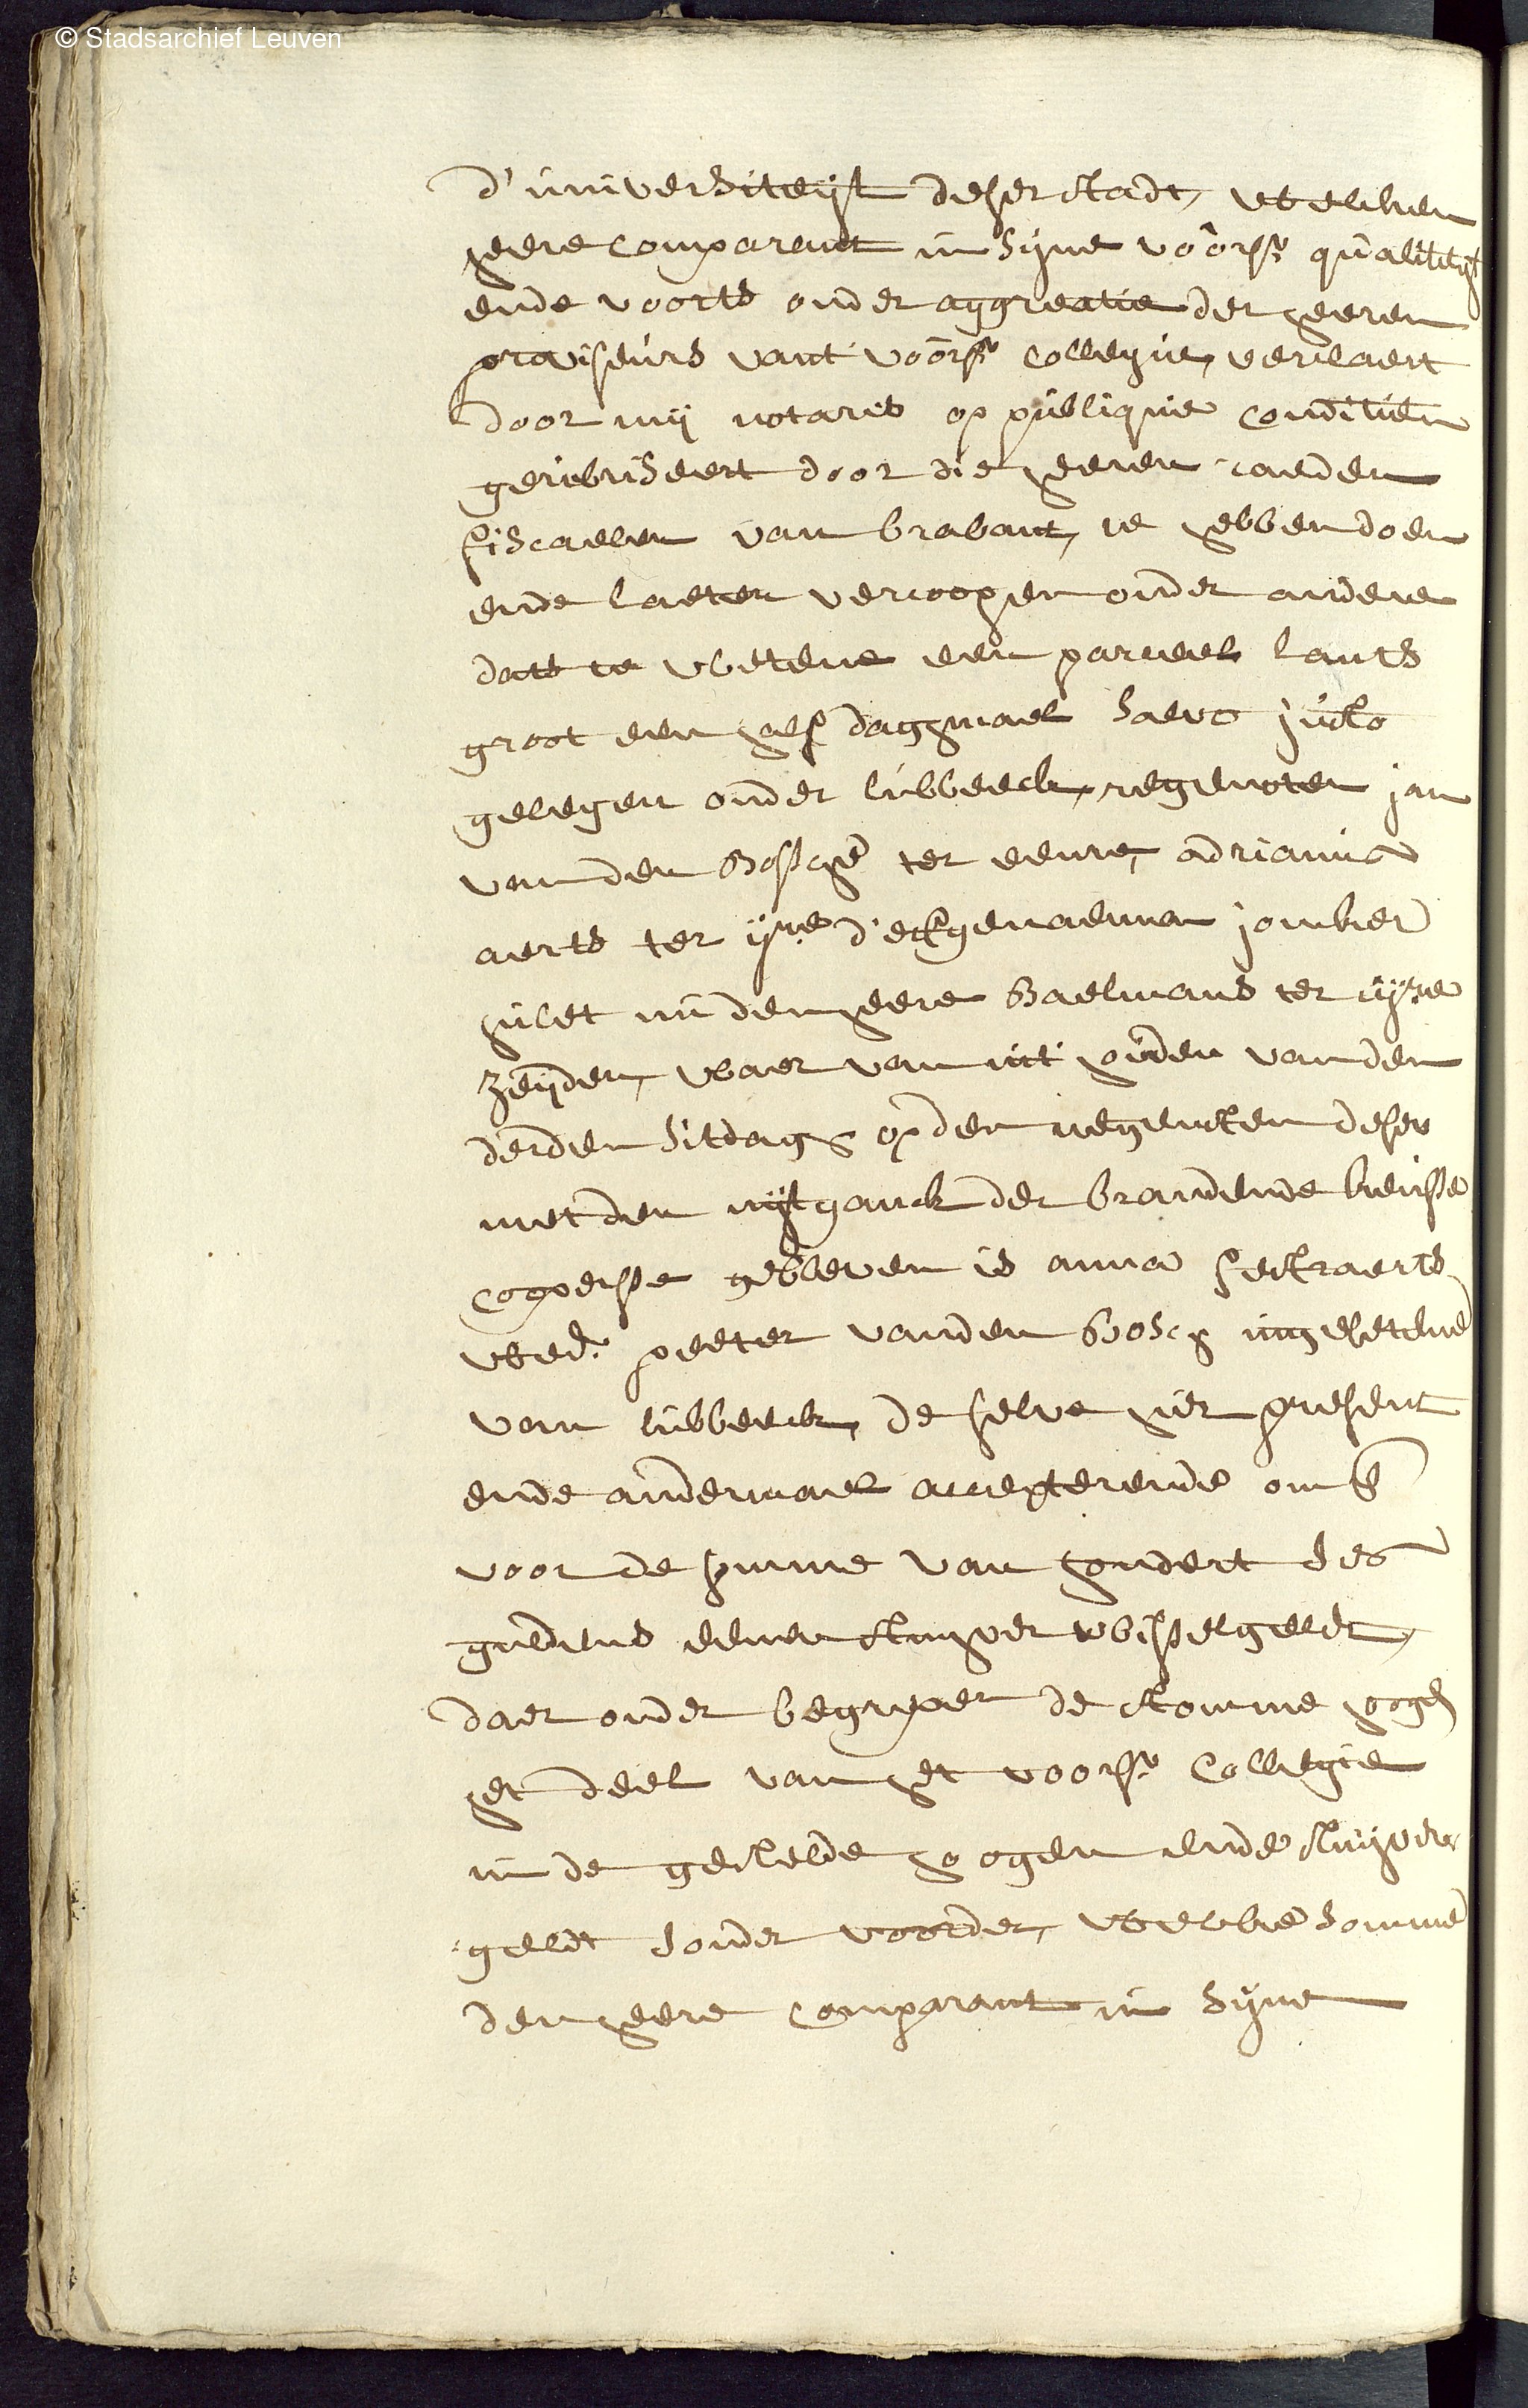 © Stadsarchief Leuven
d'universiteijt deser stadt, welcken
heere comparant in sijne voors. qualiteijt
ende voorts onder aggreatie der heeren
proviseurs vant voors. collegie, verclaert
door mij notaris op publique conditien
gerubriseert door die heeren raeden
fiscaelen van brabant, te hebben doen
ende laeten vercoopen onder andere
dats te wetene een parceel lants
groot een half daghmael salvo justo
gelegen onder lubbeeck, regenoten jan
vanden Bossche ter eenre, adriana
aerts ter ijre d'erfgenaemen joncker
hulet nu den heere Baelmans ter rijre
zeijden, waer van uut houden vanden
derden sitdagh op den negensten deser
met den uijtganck der brandende keirsse
coopersse gebleven is anna festraerts
wed. peeter vanden Bosch ingesetene
van lubbeeck, de selve hier present
ende andermael accepterende om &
voor de somme van hondert ses
guldens eenen stuyver wisselgeldt,
daer onder begrepen de somme hoogh
het deel van het voors. Collegie
in de gestelde hoogen ende stuyver
geldt sonder voorder, welcke somme
den heere comparant in sijne